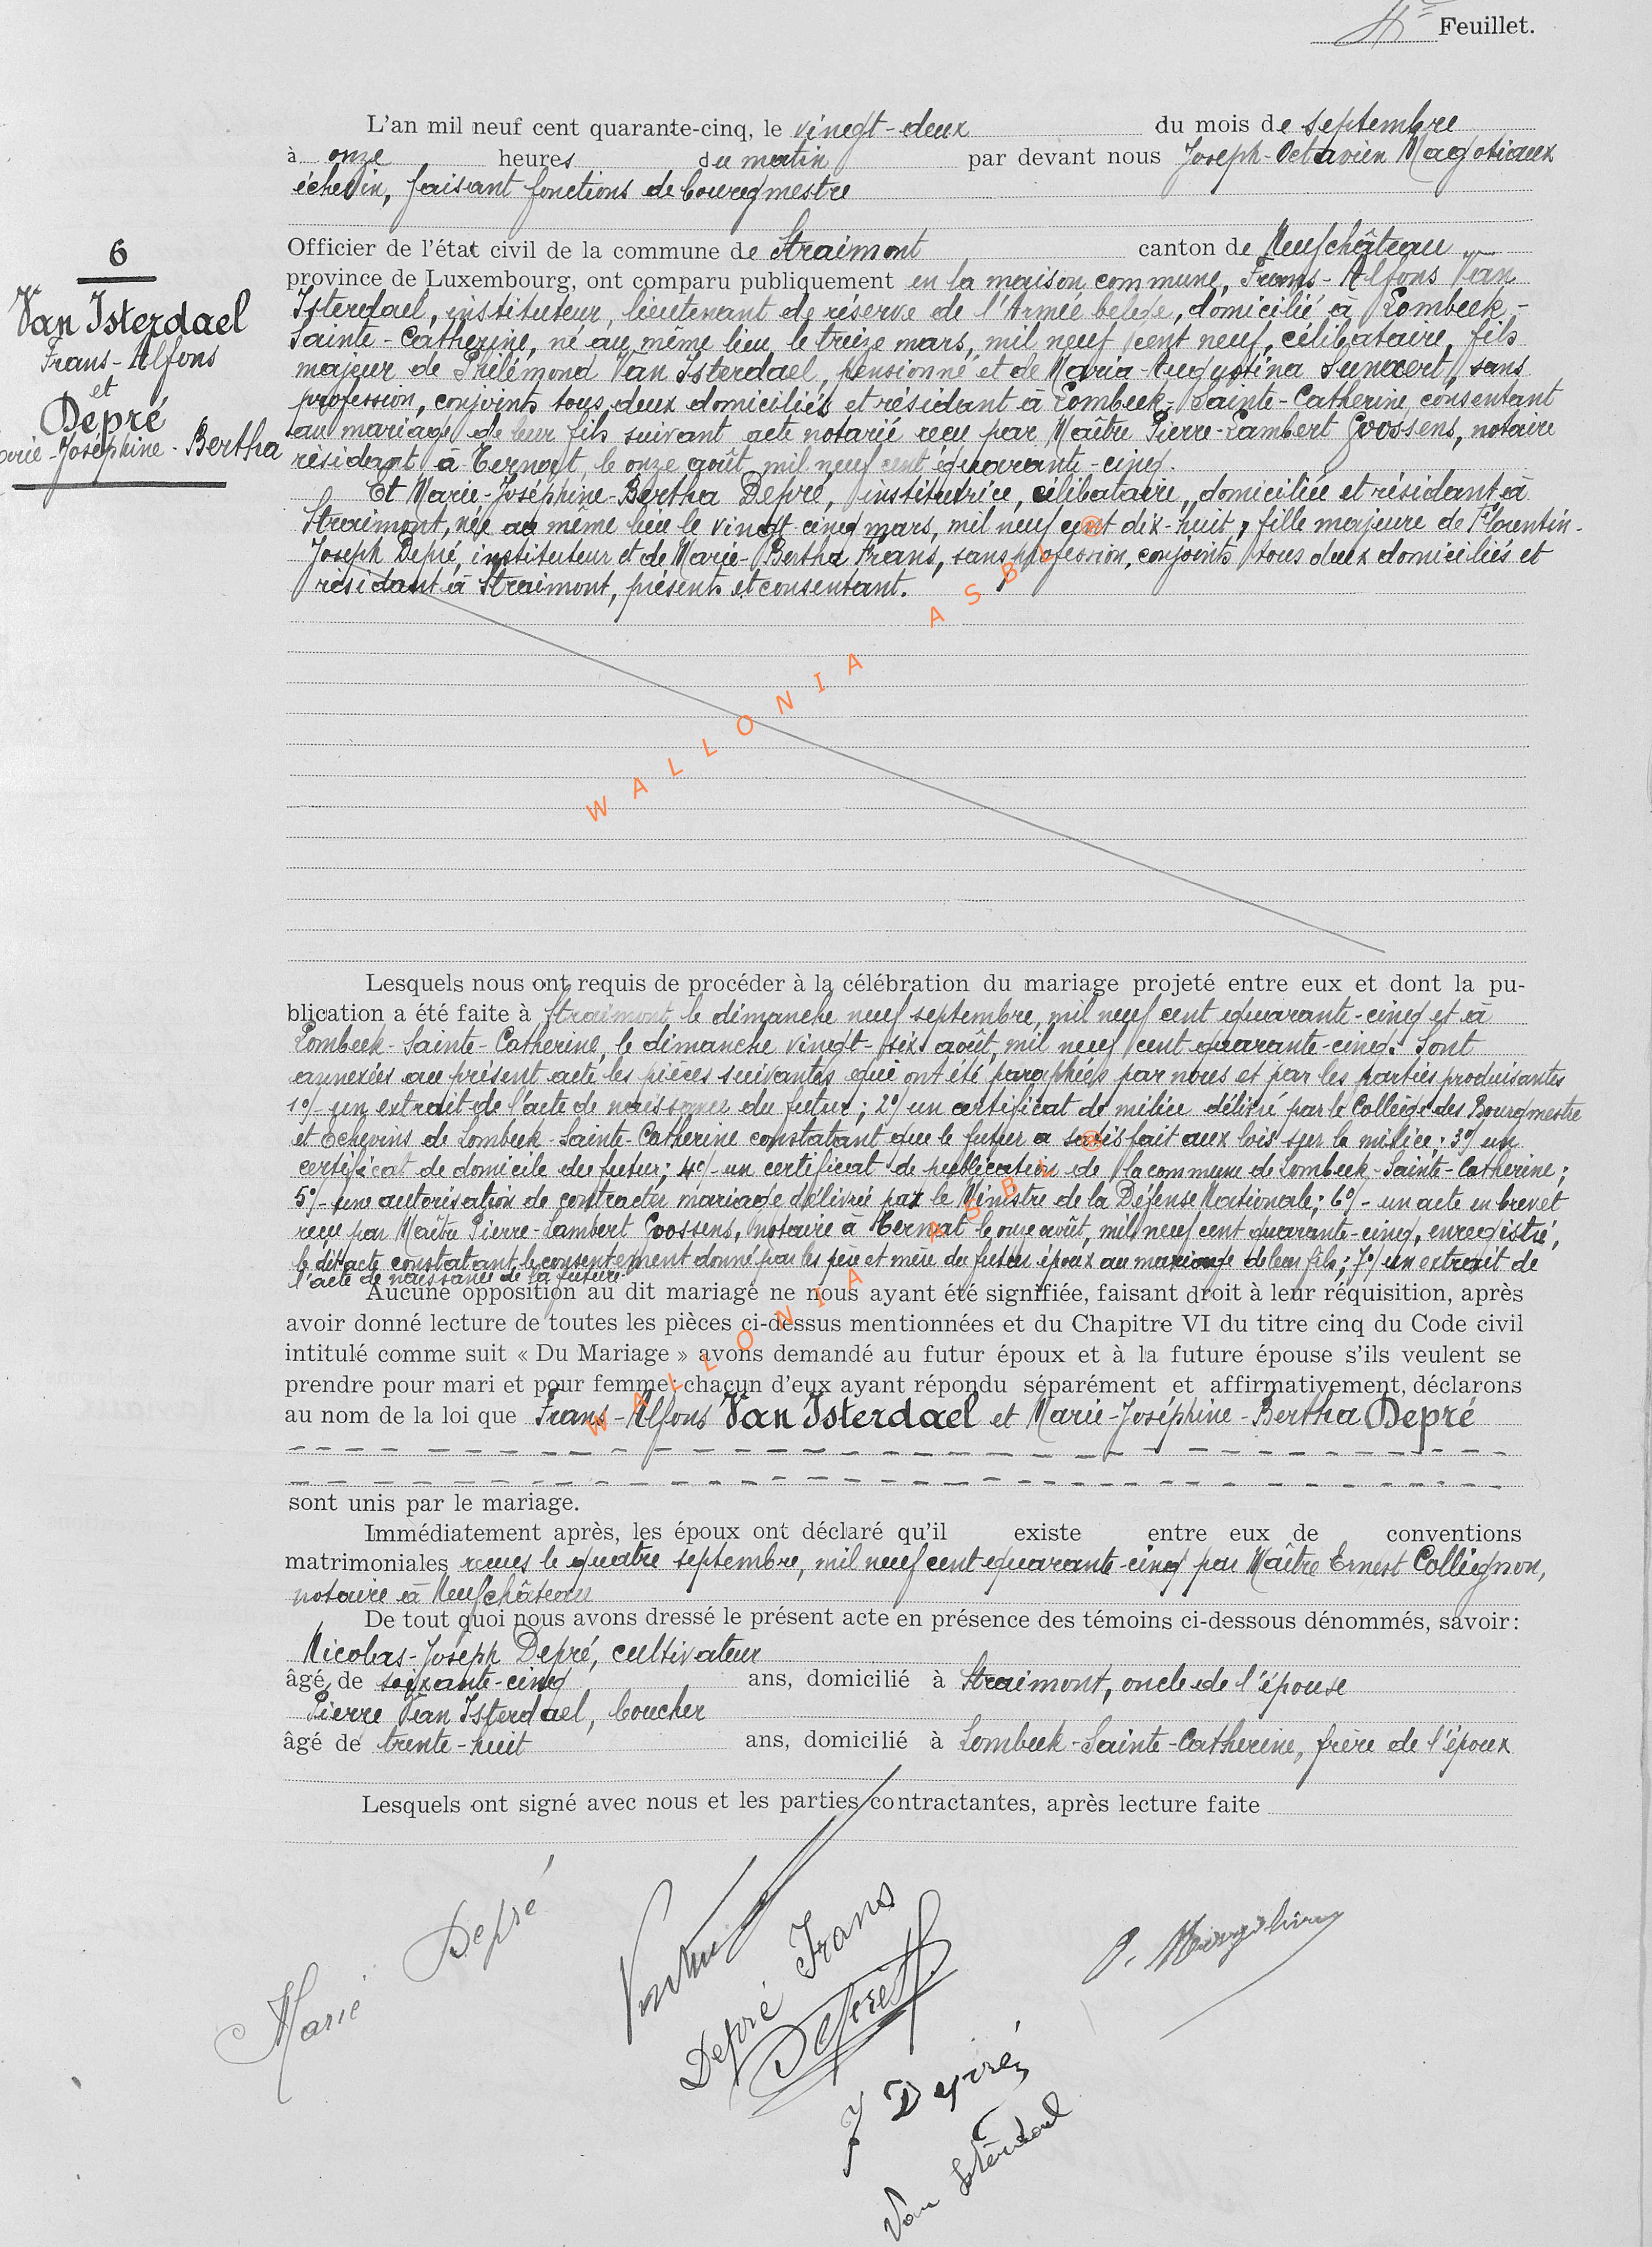 Feuillet.
L'an mil neuf cent quarante-cinq, le vingt-deux du mois de septembre
à onze heures du matin par devant nous Joseph-Octavien Magotiaux
échevin, faisant fonctions de bourgmestre
Officier de l'état civil de la commune de Straimont canton de Neufchâteau
province de Luxembourg, ont comparu publiquement en la maison commune, Frans-Alfons Van
Isterdael, instituteur, lieutenant de réserve de l'Armée belge, domicilié à Lombeek-
Sainte-Catherine, né au même lieu le treize mars, mil neuf cent neuf, célibataire, fils
majeur de Philémond Van Isterdael, pensionné et de Maria-Augustina, sans
profession, conjoints tous deux domiciliés et résidant à Lombeek-Sainte-Catherine, consentant
au mariage de leur fils suivant acte notarié reçu par Maître Pierre-Lambert Goossens, notaire
résidant à Ternat, le onze août mil neuf cent quarante-cinq.
Et Marie-Joséphine-Bertha Depré, institutrice, célibataire, domiciliée et résidant à
Straimont, née au même lieu le vingt-cinq mars, mil neuf cent dix-huit, fille majeure de Florentin-
Joseph Depré, instituteur et de Marie-Bertha Frans, sans profession, conjoints tous deux domiciliés et
résidant à Straimont, présents et consentant.
6
Van Isterdael
Frans-Alfons
et
Depré
Marie-Joséphine-Bertha
WALLONIA ASBL ®
Lesquels nous ont requis de procéder à la célébration du mariage projeté entre eux et dont la pu-
blication a été faite à Straimont, le dimanche neuf septembre, mil neuf cent quarante-cinq et à
Lombeek-Sainte-Catherine, le dimanche vingt-six août, mil neuf cent quarante-cinq. Sont
annexées au présent acte les pièces suivantes qui ont été paraphées par nous et par les parties produisantes
1°/- un extrait de l'acte de naissance du futur; 2°/ un certificat de milice délivré par le Collège des Bourgmestre
et Echevins de Lombeek-Sainte-Catherine constatant que le futur a satisfait aux lois sur la milice; 3°/ un
certificat de domicile du futur; 4°/- un certificat de publication de la commune de Lombeek-Sainte-Catherine;
5°/- une autorisation de contracter mariage délivrée par le Ministre de la Défense Nationale; 6°/- un acte en brevet
reçu par Maître Pierre-Lambert Goossens, notaire à Ternat le onze août, mil neuf cent quarante-cinq, enregistré,
le dit acte constatant le consentement donné par les père et mère du futur époux au mariage de leur fils; 7°/ un extrait de
l'acte de naissance de la future
Aucune opposition au dit mariage ne nous ayant été signifiée, faisant droit à leur réquisition, après
avoir donné lecture de toutes les pièces ci-dessus mentionnées et du Chapitre VI du titre cinq du Code civil
intitulé comme suit « Du Mariage » avons demandé au futur époux et à la future épouse s'ils veulent se
prendre pour mari et pour femme; chacun d'eux ayant répondu séparément et affirmativement, déclarons
au nom de la loi que Frans-Alfons Van Isterdael et Marie-Joséphine-Bertha Depré
WALLONIA ASBL ®
sont unis par le mariage.
Immédiatement après, les époux ont déclaré qu'il existe entre eux de conventions
matrimoniales reçues le quatre septembre, mil neuf cent quarante-cinq par Maître Ernest Collignon,
notaire à Neufchâteau
De tout quoi nous avons dressé le présent acte en présence des témoins ci-dessous dénommés, savoir:
Nicolas-Joseph Depré, cultivateur
âgé de soixante-cinq ans, domicilié à Straimont, oncle de l'épouse
Pierre Van Isterdael, boucher
âgé de trente-huit ans, domicilié à Lombeek-Sainte-Catherine, frère de l'époux
Lesquels ont signé avec nous et les parties contractantes, après lecture faite
Marie Depré
Depré Frans
J Depré
Van Isterdael